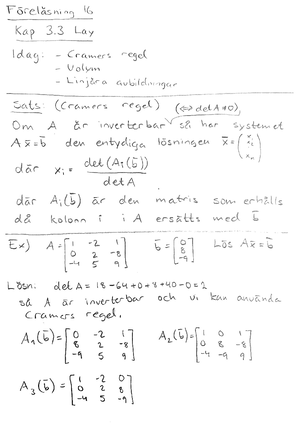 Föreläsning 16
Kap 3.3 Lay
Idag: - Cramers regel
- Volym
- Linjära avbildningar
Sats: (Cramers regel) (⇔ det A ≠ 0)
Om A är inverterbar så har systemet
A x̄ = b̄ den entydiga lösningen x̄ = (x₁ ⋮ xₙ)
där xᵢ = det(Aᵢ(b̄)) / det A
där Aᵢ(b̄) är den matris som erhålls
då kolonn i i A ersätts med b̄
Ex) A = [1 -2 1; 0 2 -8; -4 5 9] b̄ = [0; 8; -9] Lös A x̄ = b̄
Lösn: det A = 18 - 64 + 0 + 8 + 40 - 0 = 2
så A är inverterbar och vi kan använda
Cramers regel.
A₁(b̄) = [0 -2 1; 8 2 -8; -9 5 9] A₂(b̄) = [1 0 1; 0 8 -8; -4 -9 9]
A₃(b̄) = [1 -2 0; 0 2 8; -4 5 -9]